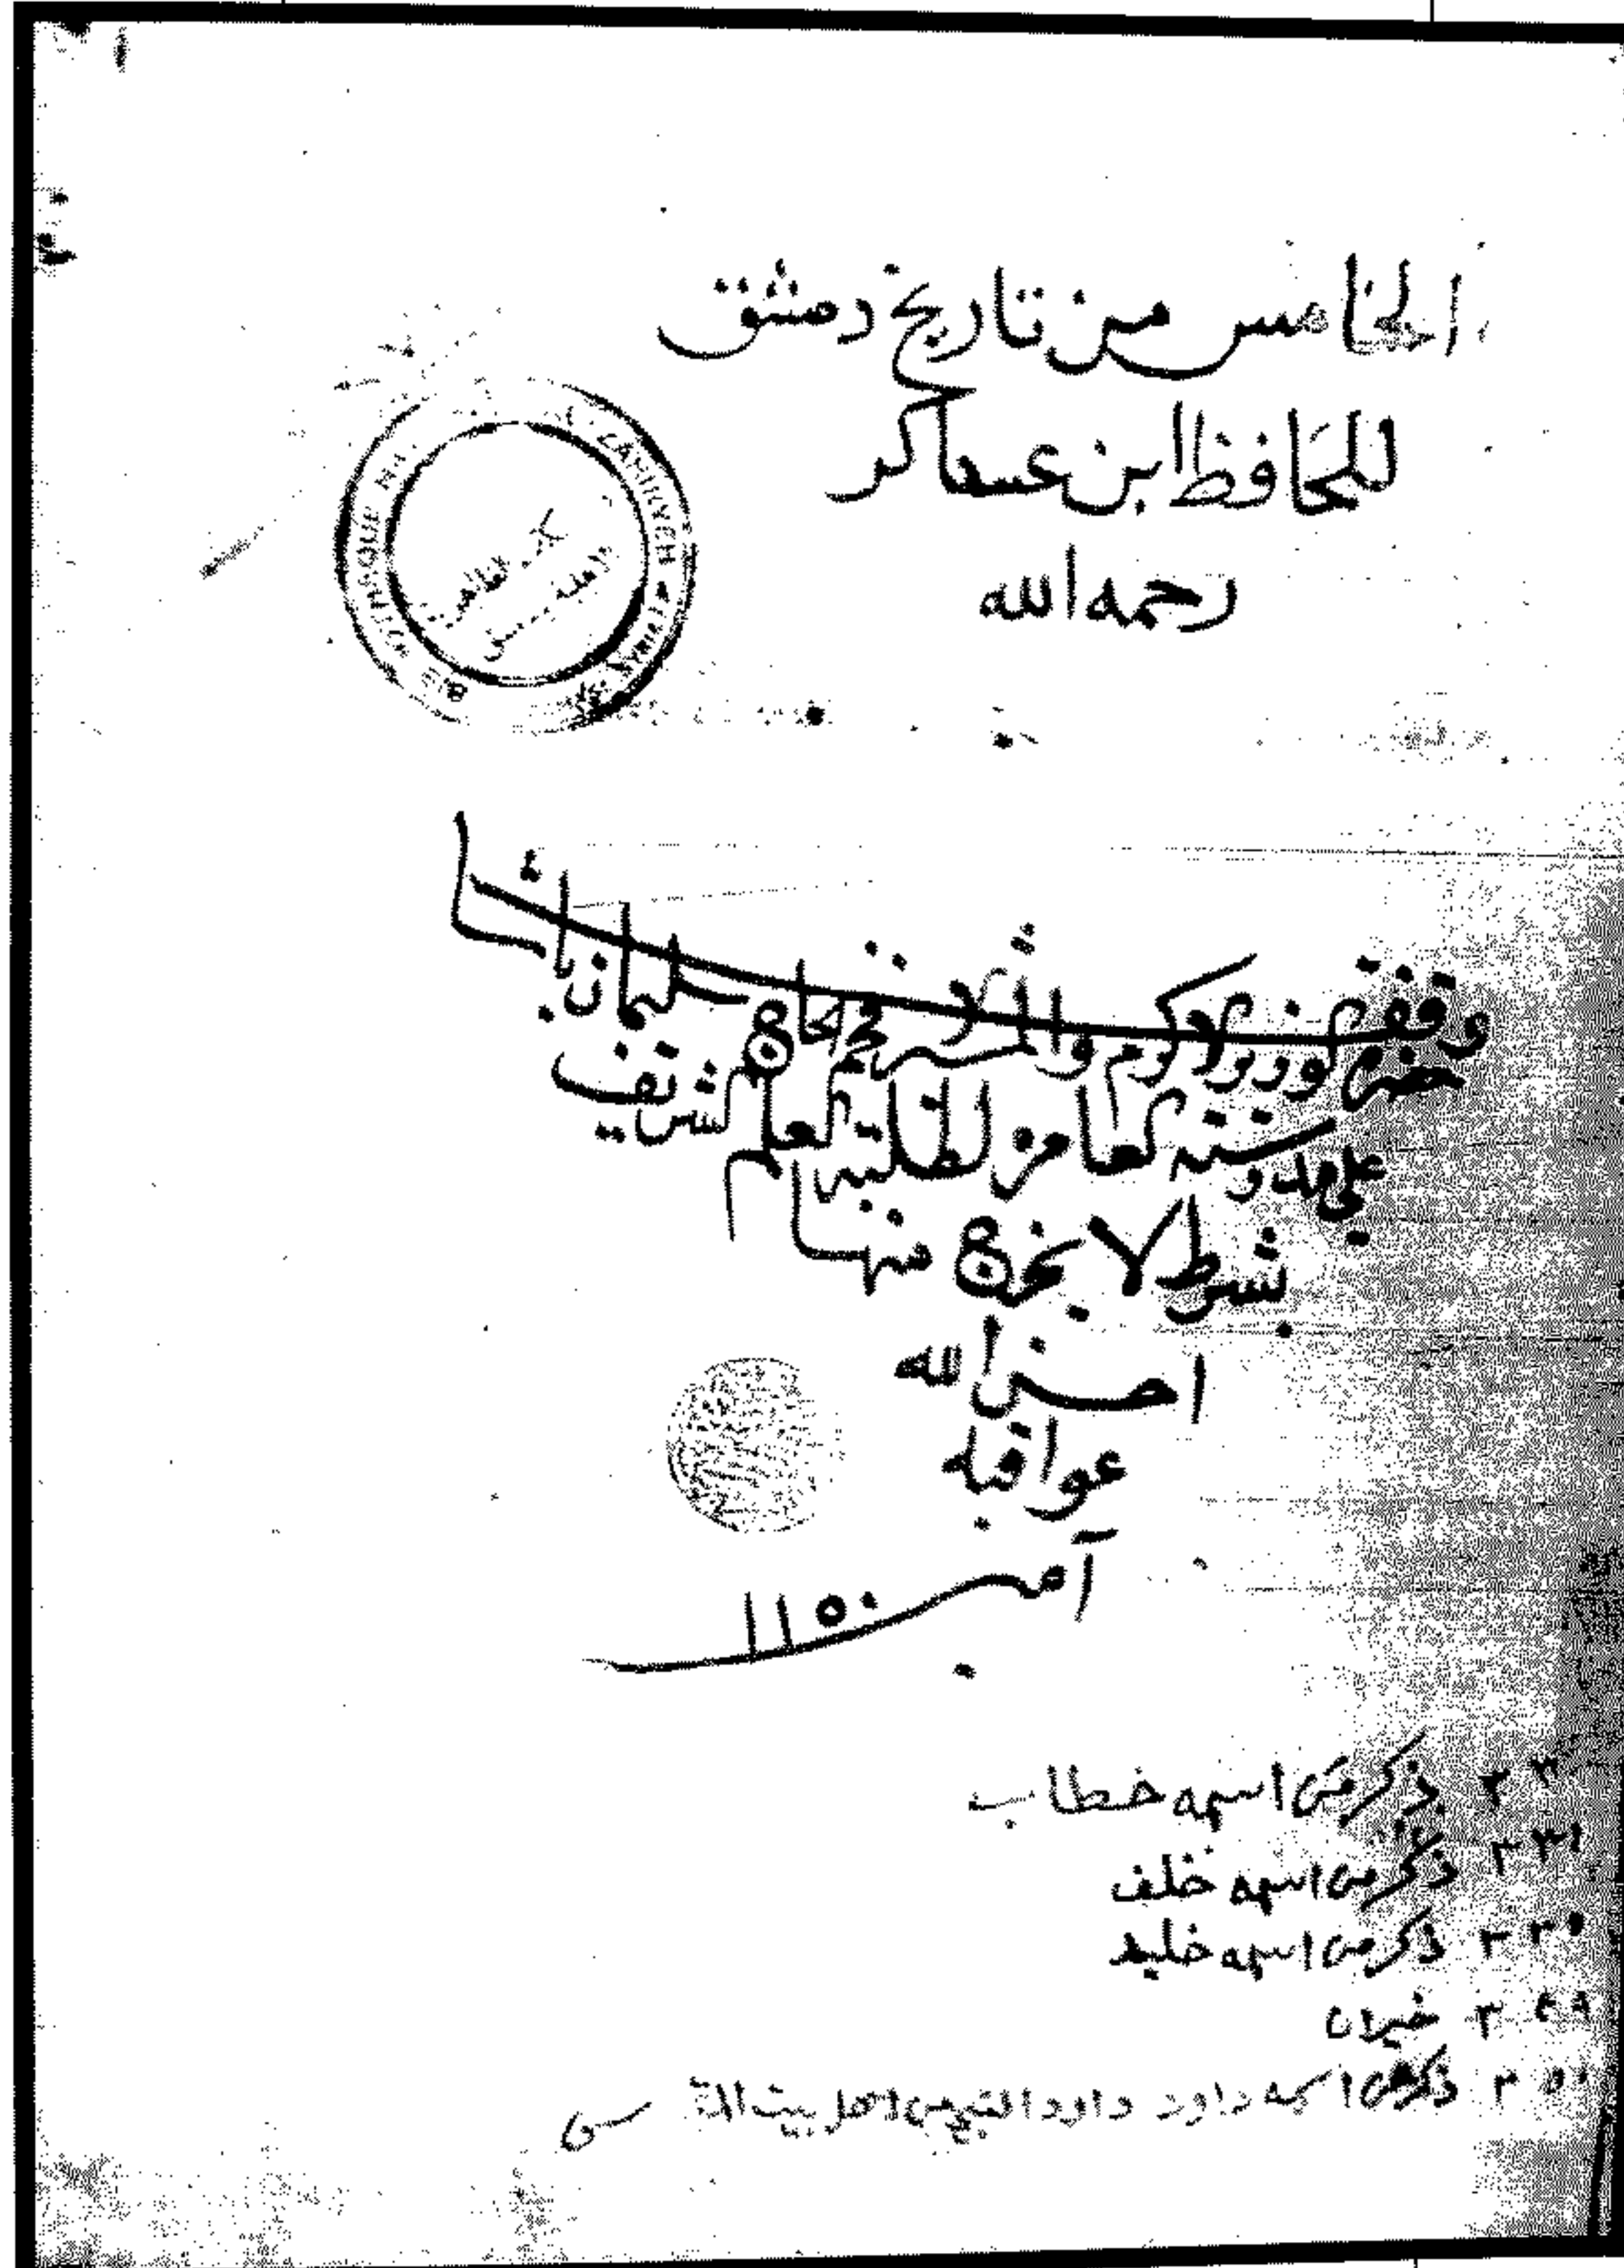 الخامس من تاريخ دمشق
للحافظ ابن عساكر
رحمه الله
وقف حضرة الوزير الاكرم والمشير الافخم الحاج سليمان باشا
على مدرسته العامرة لطلبة العلم الشريف
بشرط لا يخرج منها
احسن الله
عواقبه
آمين ١١٥٠
ذكر من اسمه خطاب
٣٣١ ذكر من اسمه خلف
ذكر من اسمه خليد
٣٤٩ خيران
ذكر من اسمه داود داود النبي من اهل بيت